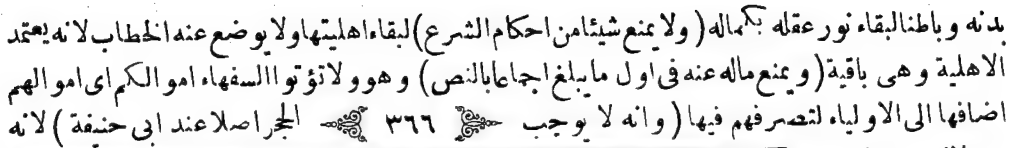 بدنه وباطنا لبقاء نور عقله بكماله ( ولا يمنع شيئا من احكام الشرع ) لبقاء اهليتها ولا يوضع عنه الخطاب لانه يعتمد
الاهلية وهى باقية ( ويمنع ماله عنه فى اول ما يبلغ اجماعا بالنص ) وهو ولا تؤتوا السفهاء اموالكم اى اموالهم
اضافها الى الاولياء لتصرفهم فيها ( وانه لا يوجب ٣٦٦ الحجر اصلا عند ابى حنيفة ) لانه